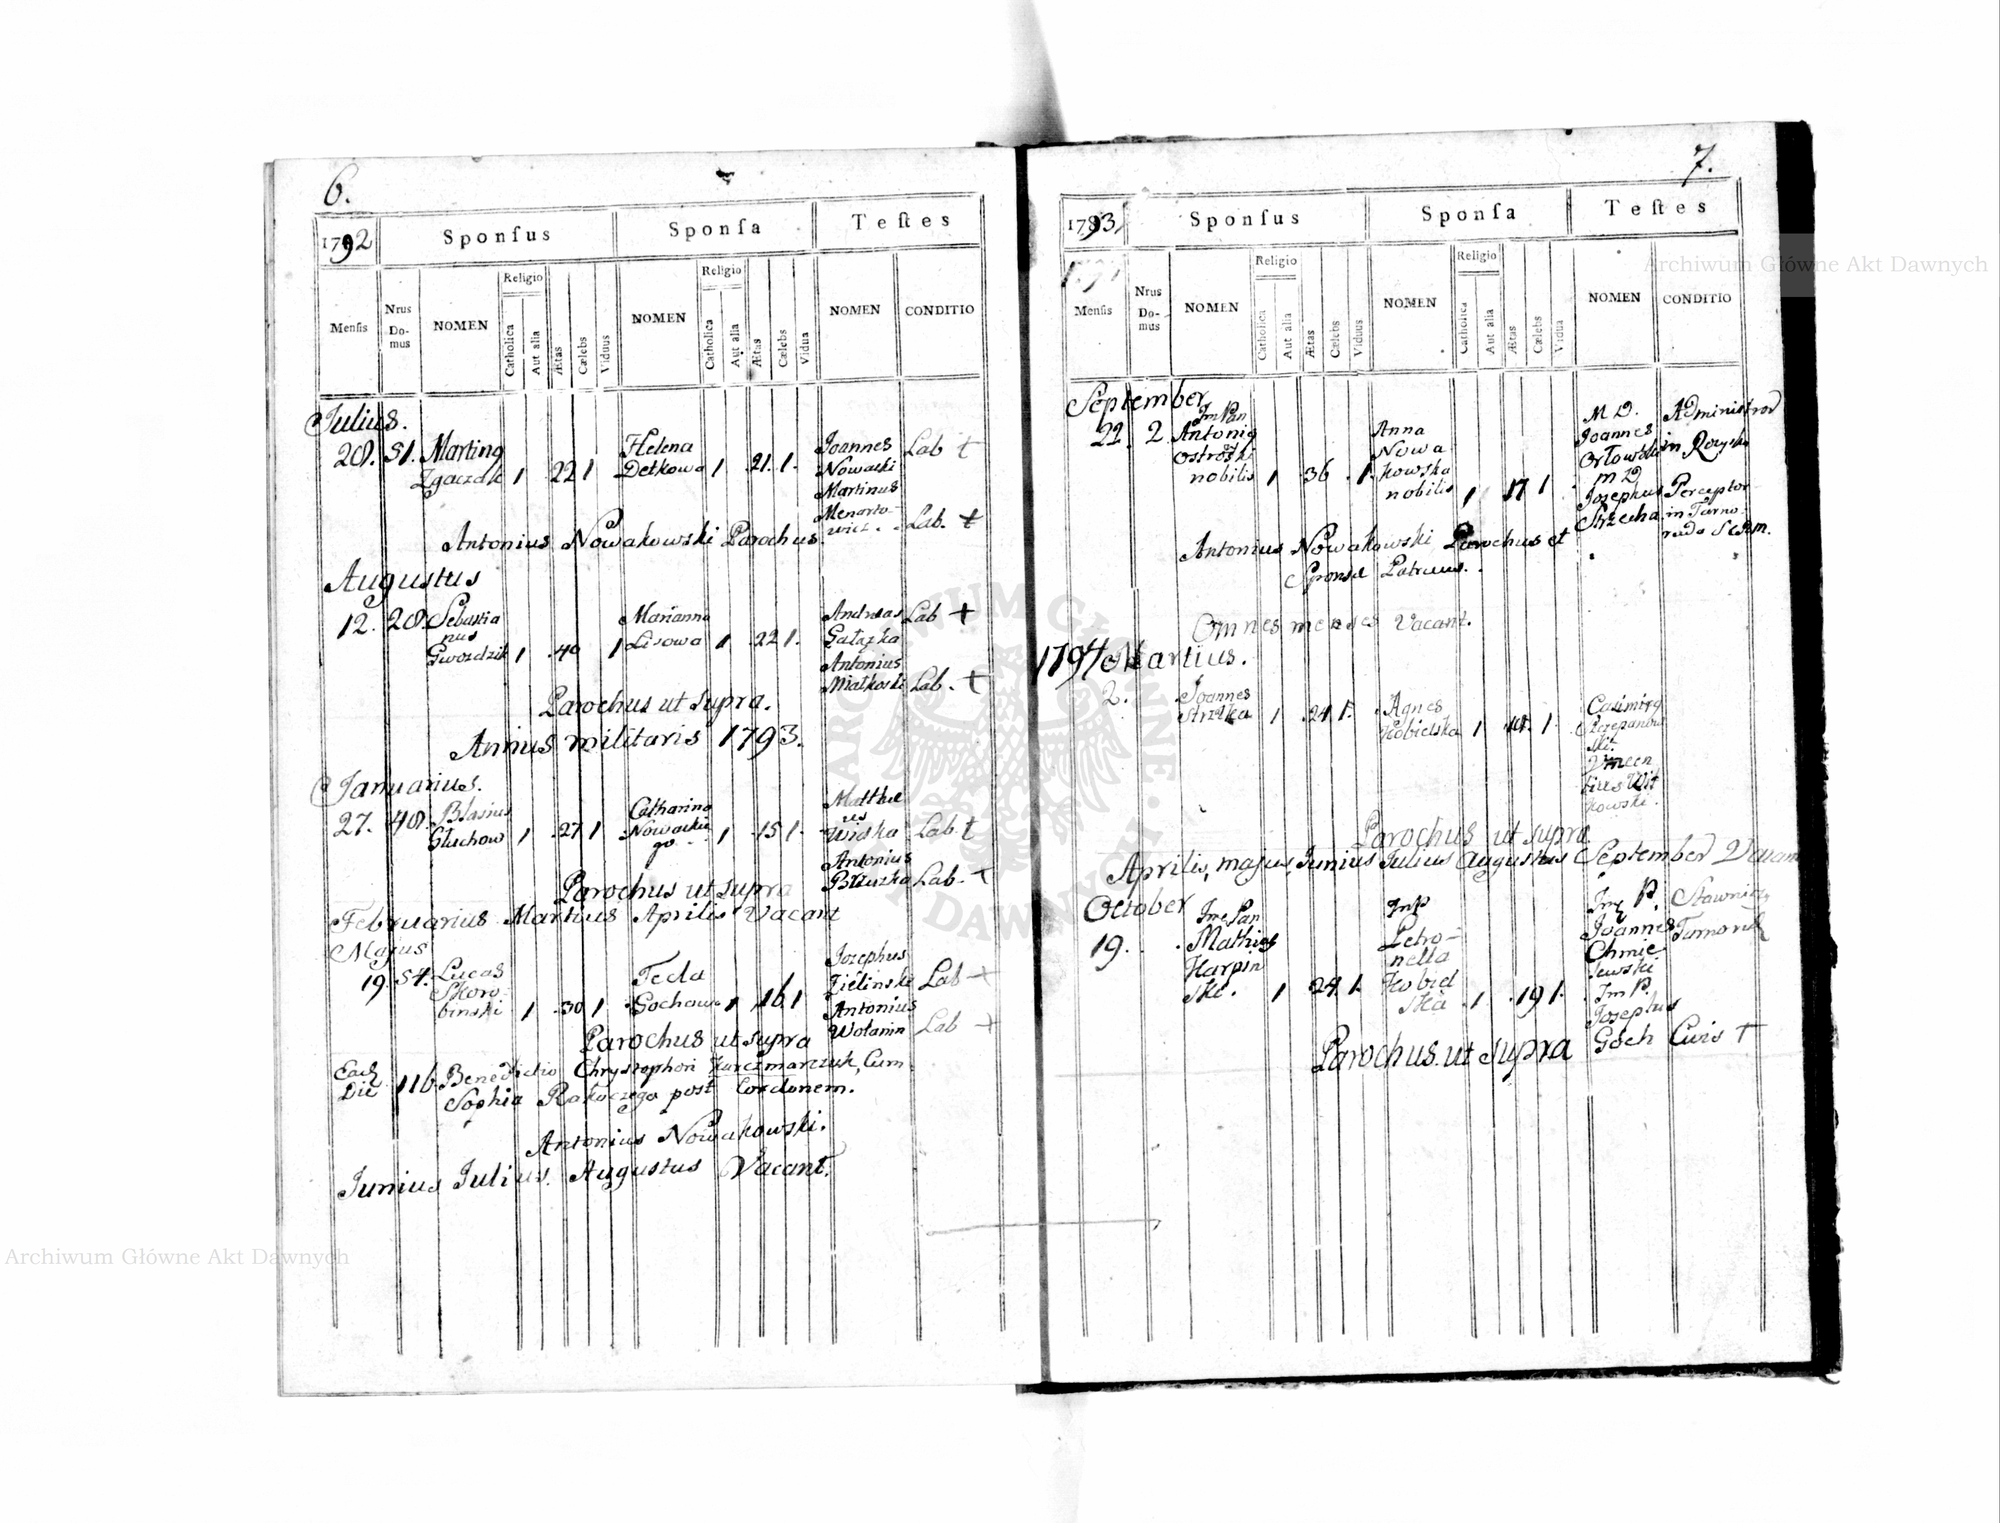 6.
1792 Sponsus Sponsa Testes
Mensis Nrus Domus NOMEN Religio Catholica Aut alia Ætas Cælebs Viduus NOMEN Religio Catholica Aut alia Ætas Cælebs Vidua NOMEN CONDITIO
Julius.
20. 51. Martin9 Helena Joannes Lab +
Zgaczak 1 22 1 Detkowa 1 21. 1. Nowacki
Martinus
Menarto-
wicz. Lab. +
Antonius Nowakowski Parochus.
Augustus
12. 20. Sebastia Marianna Andreas Lab +
nus
Gwozdzik 1 40 1 Lisowa 1 22 1. Gałązka
Antonius
Miałkoski Lab. +
Parochus ut supra.
Annus militaris 1793.
Januarius.
27. 40. Blasius Catharina Matthe
us
Głuchow 1 27 1 1 15 1. Lab. +
Antonius
Lab. +
Parochus ut supra
Februarius Martius Aprilis Vacant
Majus
19. 54. Lucas Tecla Josephus
Skoro-
binski 1 30 1 Gochowa 1 16 1 Zielinski Lab +
Antonius
Wołanin Lab +
Parochus ut supra
Eadē
Die 116. Benedictio Chrystophori Karczmarczuk, Cum
Sophia Rakoczego post Cordonem.
Antonius Nowakowski.
Junius Julius. Augustus Vacant.
7.
1793 Sponsus Sponsa Testes
Mensis Nrus Domus NOMEN Religio Catholica Aut alia Ætas Cælebs Viduus NOMEN Religio Catholica Aut alia Ætas Cælebs Vidua NOMEN CONDITIO
September
22. 2. Antoni9 Anna M D. Administrator
Ostroski Nowa Joannes
nobilis 1 36 1. kowska Orłowski
nobilis 1 17 1 M D
Josephus Perceptor
Strzecha in Tarno-
Antonius Nowakowski Parochus et
Sponsæ Patruus.
Omnes menses Vacant.
1794 Martius.
2. Joannes Agnes Casimir9
1 24 1. Kobielska 1 1.
Vincen
tius Wit
kowski.
Parochus ut supra
Aprilis, majus, Junius Julius Augustus September Vacant
October
19. Mathias Petro- Joannes
Karpin nella Chmie-
ski. 1 24 1. Kobiel lewski
ska 1 19 1. Im P.
Josephus
Goch Civis +
Parochus ut supra
Archiwum Główne Akt Dawnych
Archiwum Główne Akt Dawnych
ARCHIWUM GŁÓWNE AKT DAWNYCH